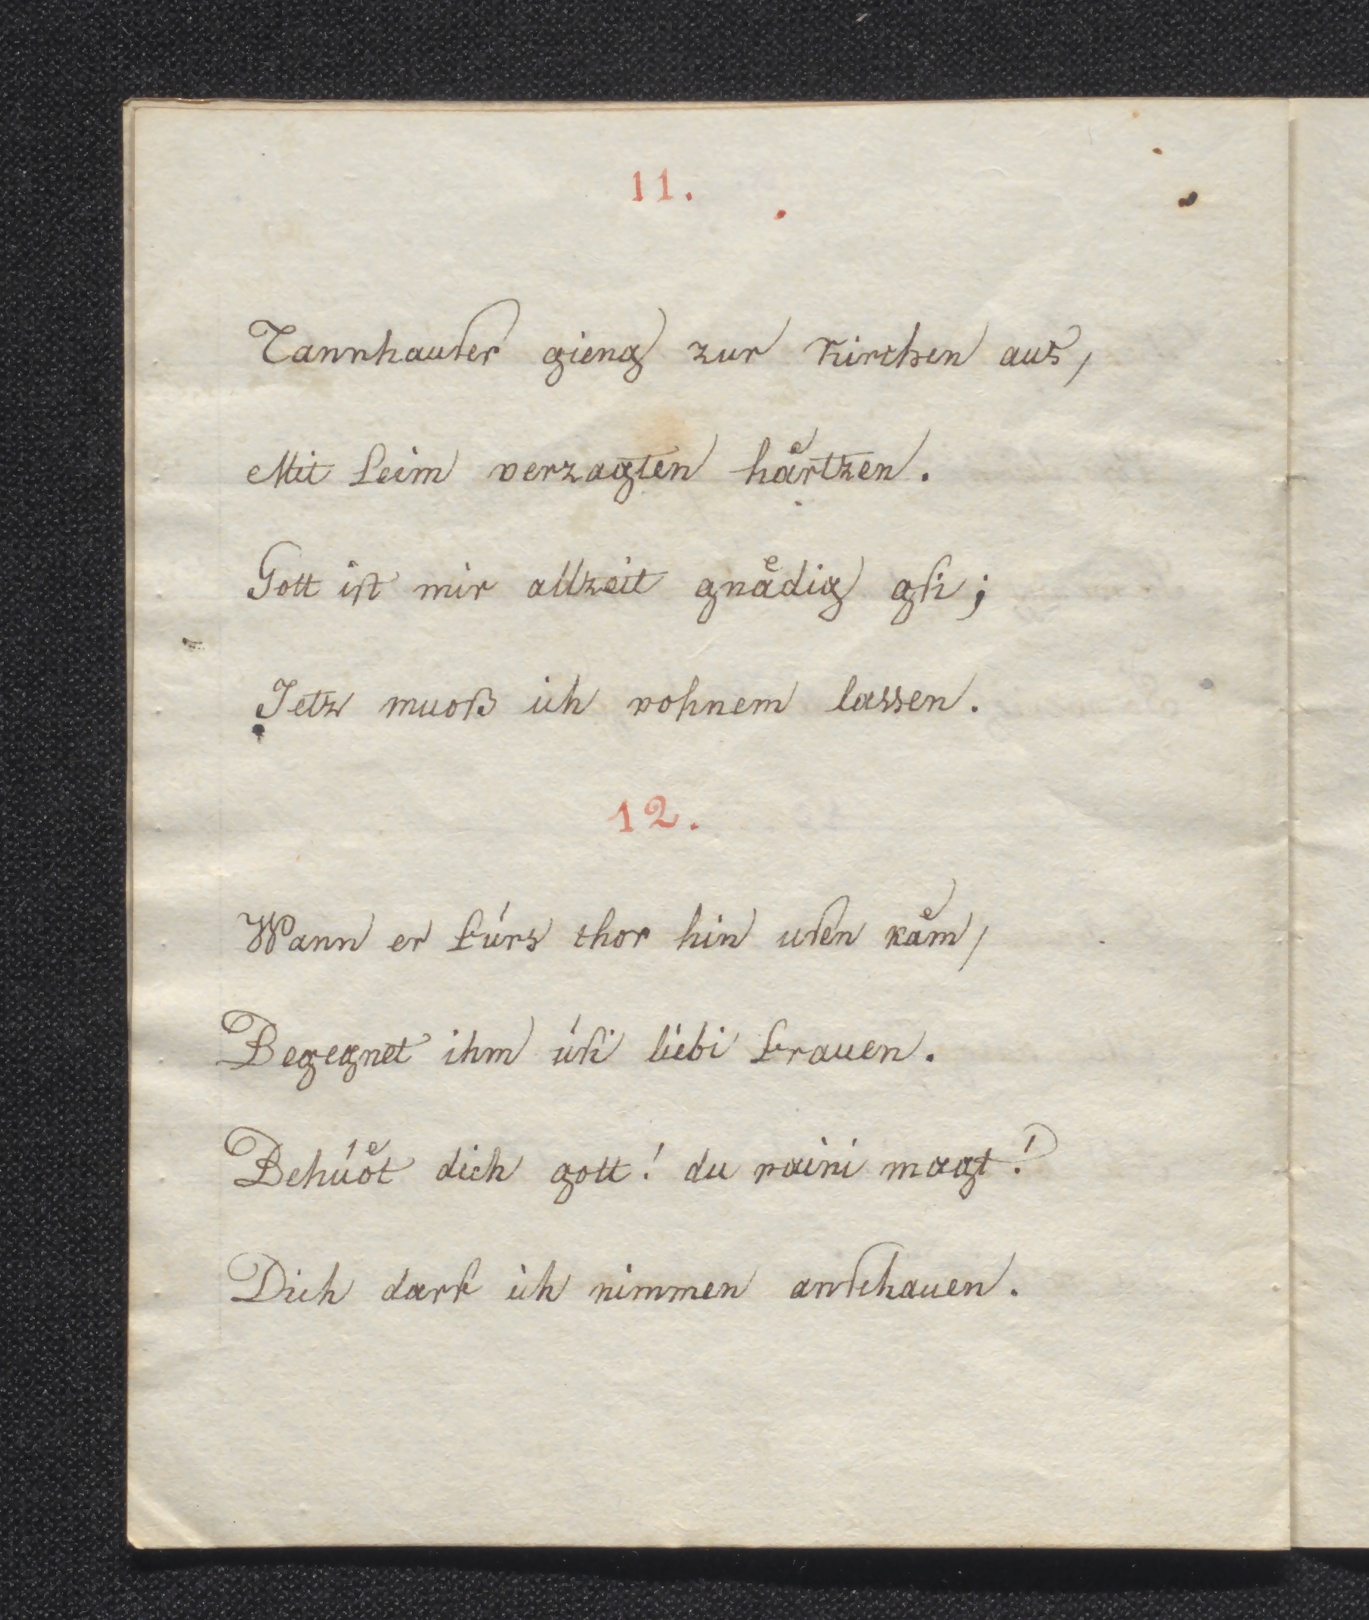 11.
Tannhauser gieng zur kirchen aus,
Mit seim verzagten haͤrtzen.
Gott ist mir allzeit gnaͤdig gsi;
Jetz muoß ich vohnem lassen.
12.
Wann er fúrs thor hin usen kaͤm,
Begegnet ihm úsi liebi frauen.
Behúoͤt dich gott! du raini magt!
Dich darf ich nimmen anschauen.